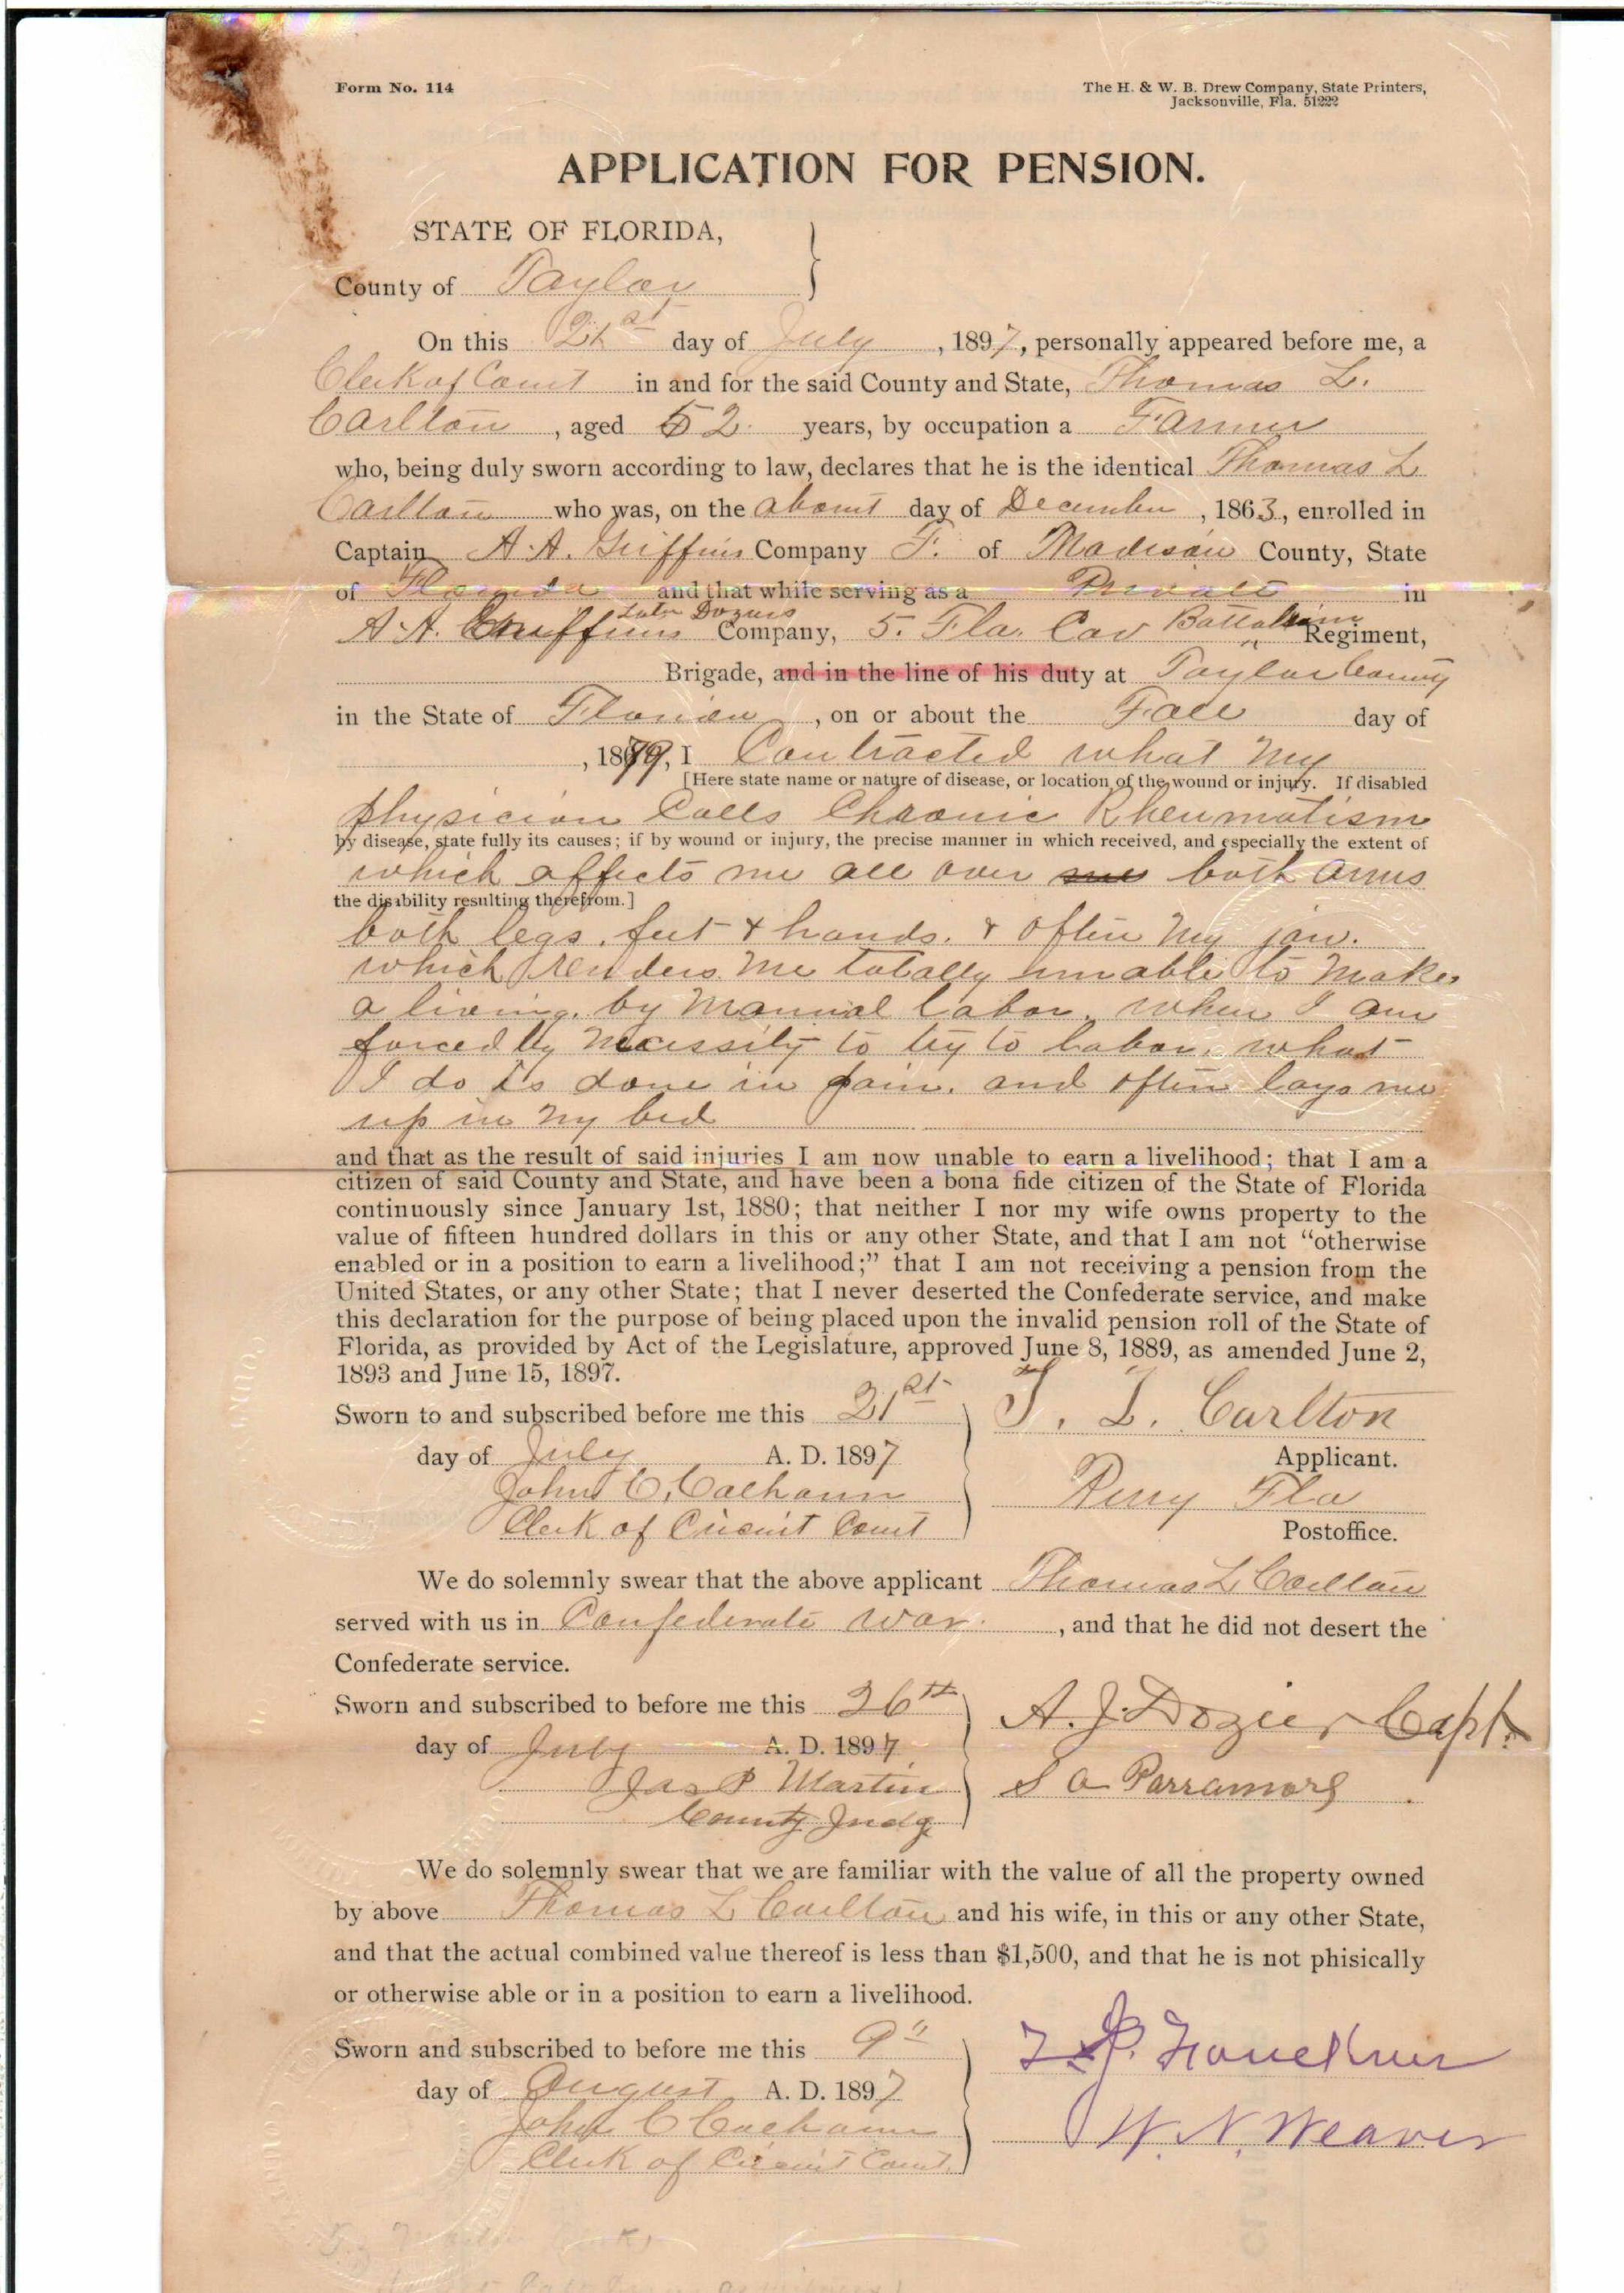 Form No. 114
The H. & W. B. Drew Company, State Printers,
Jacksonville, Fla. 51222
APPLICATION FOR PENSION.
STATE OF FLORIDA,
County of Taylor
On this 21st day of July, 1897, personally appeared before me, a
Clerk of Court in and for the said County and State, Thomas L.
Carlton, aged 52 years, by occupation a Farmer
who, being duly sworn according to law, declares that he is the identical Thomas L
Carlton who was, on the about day of December, 1863, enrolled in
Captain A. A. Griffins Company F. of Madison County, State
of Florida and that while serving as a Private in
Later Doziers
A. A. Griffins Company, 5. Fla. Cav Battalion Regiment,
Brigade, and in the line of his duty at Taylor County
in the State of Florida, on or about the Fall day of
, 1879, I Contracted what my
[Here state name or nature of disease, or location of the wound or injury. If disabled
physician Calls Chronic Rheumatism
by disease, state fully its causes; if by wound or injury, the precise manner in which received, and especially the extent of
which affects me all over both arms
the disability resulting therefrom.]
both legs, feet & hands. & often my jaw.
which renders me totally unable to make
a living by manual labor. when I am
forced by necessity to try to labor, what
I do is done in pain. and often lays me
up in my bed
and that as the result of said injuries I am now unable to earn a livelihood; that I am a
citizen of said County and State, and have been a bona fide citizen of the State of Florida
continuously since January 1st, 1880; that neither I nor my wife owns property to the
value of fifteen hundred dollars in this or any other State, and that I am not “otherwise
enabled or in a position to earn a livelihood;” that I am not receiving a pension from the
United States, or any other State; that I never deserted the Confederate service, and make
this declaration for the purpose of being placed upon the invalid pension roll of the State of
Florida, as provided by Act of the Legislature, approved June 8, 1889, as amended June 2,
1893 and June 15, 1897.
Sworn to and subscribed before me this 21st
T. L. Carlton
Applicant.
day of July A. D. 1897
John C. Calhoun
Perry Fla
Clerk of Circuit Court
Postoffice.
We do solemnly swear that the above applicant Thomas L Carlton
served with us in Confederate war, and that he did not desert the
Confederate service.
Sworn and subscribed to before me this 26th
A. J. Dozier Capt.
day of July A. D. 1897
Jas P Martin
S A Parramore
County Judg
We do solemnly swear that we are familiar with the value of all the property owned
by above Thomas L Carlton and his wife, in this or any other State,
and that the actual combined value thereof is less than $1,500, and that he is not phisically
or otherwise able or in a position to earn a livelihood.
Sworn and subscribed to before me this 9"
T. J. Faulkner
day of August A. D. 1897
John C Calhoun
W. N. Weaver
Clerk of Circuit Court.